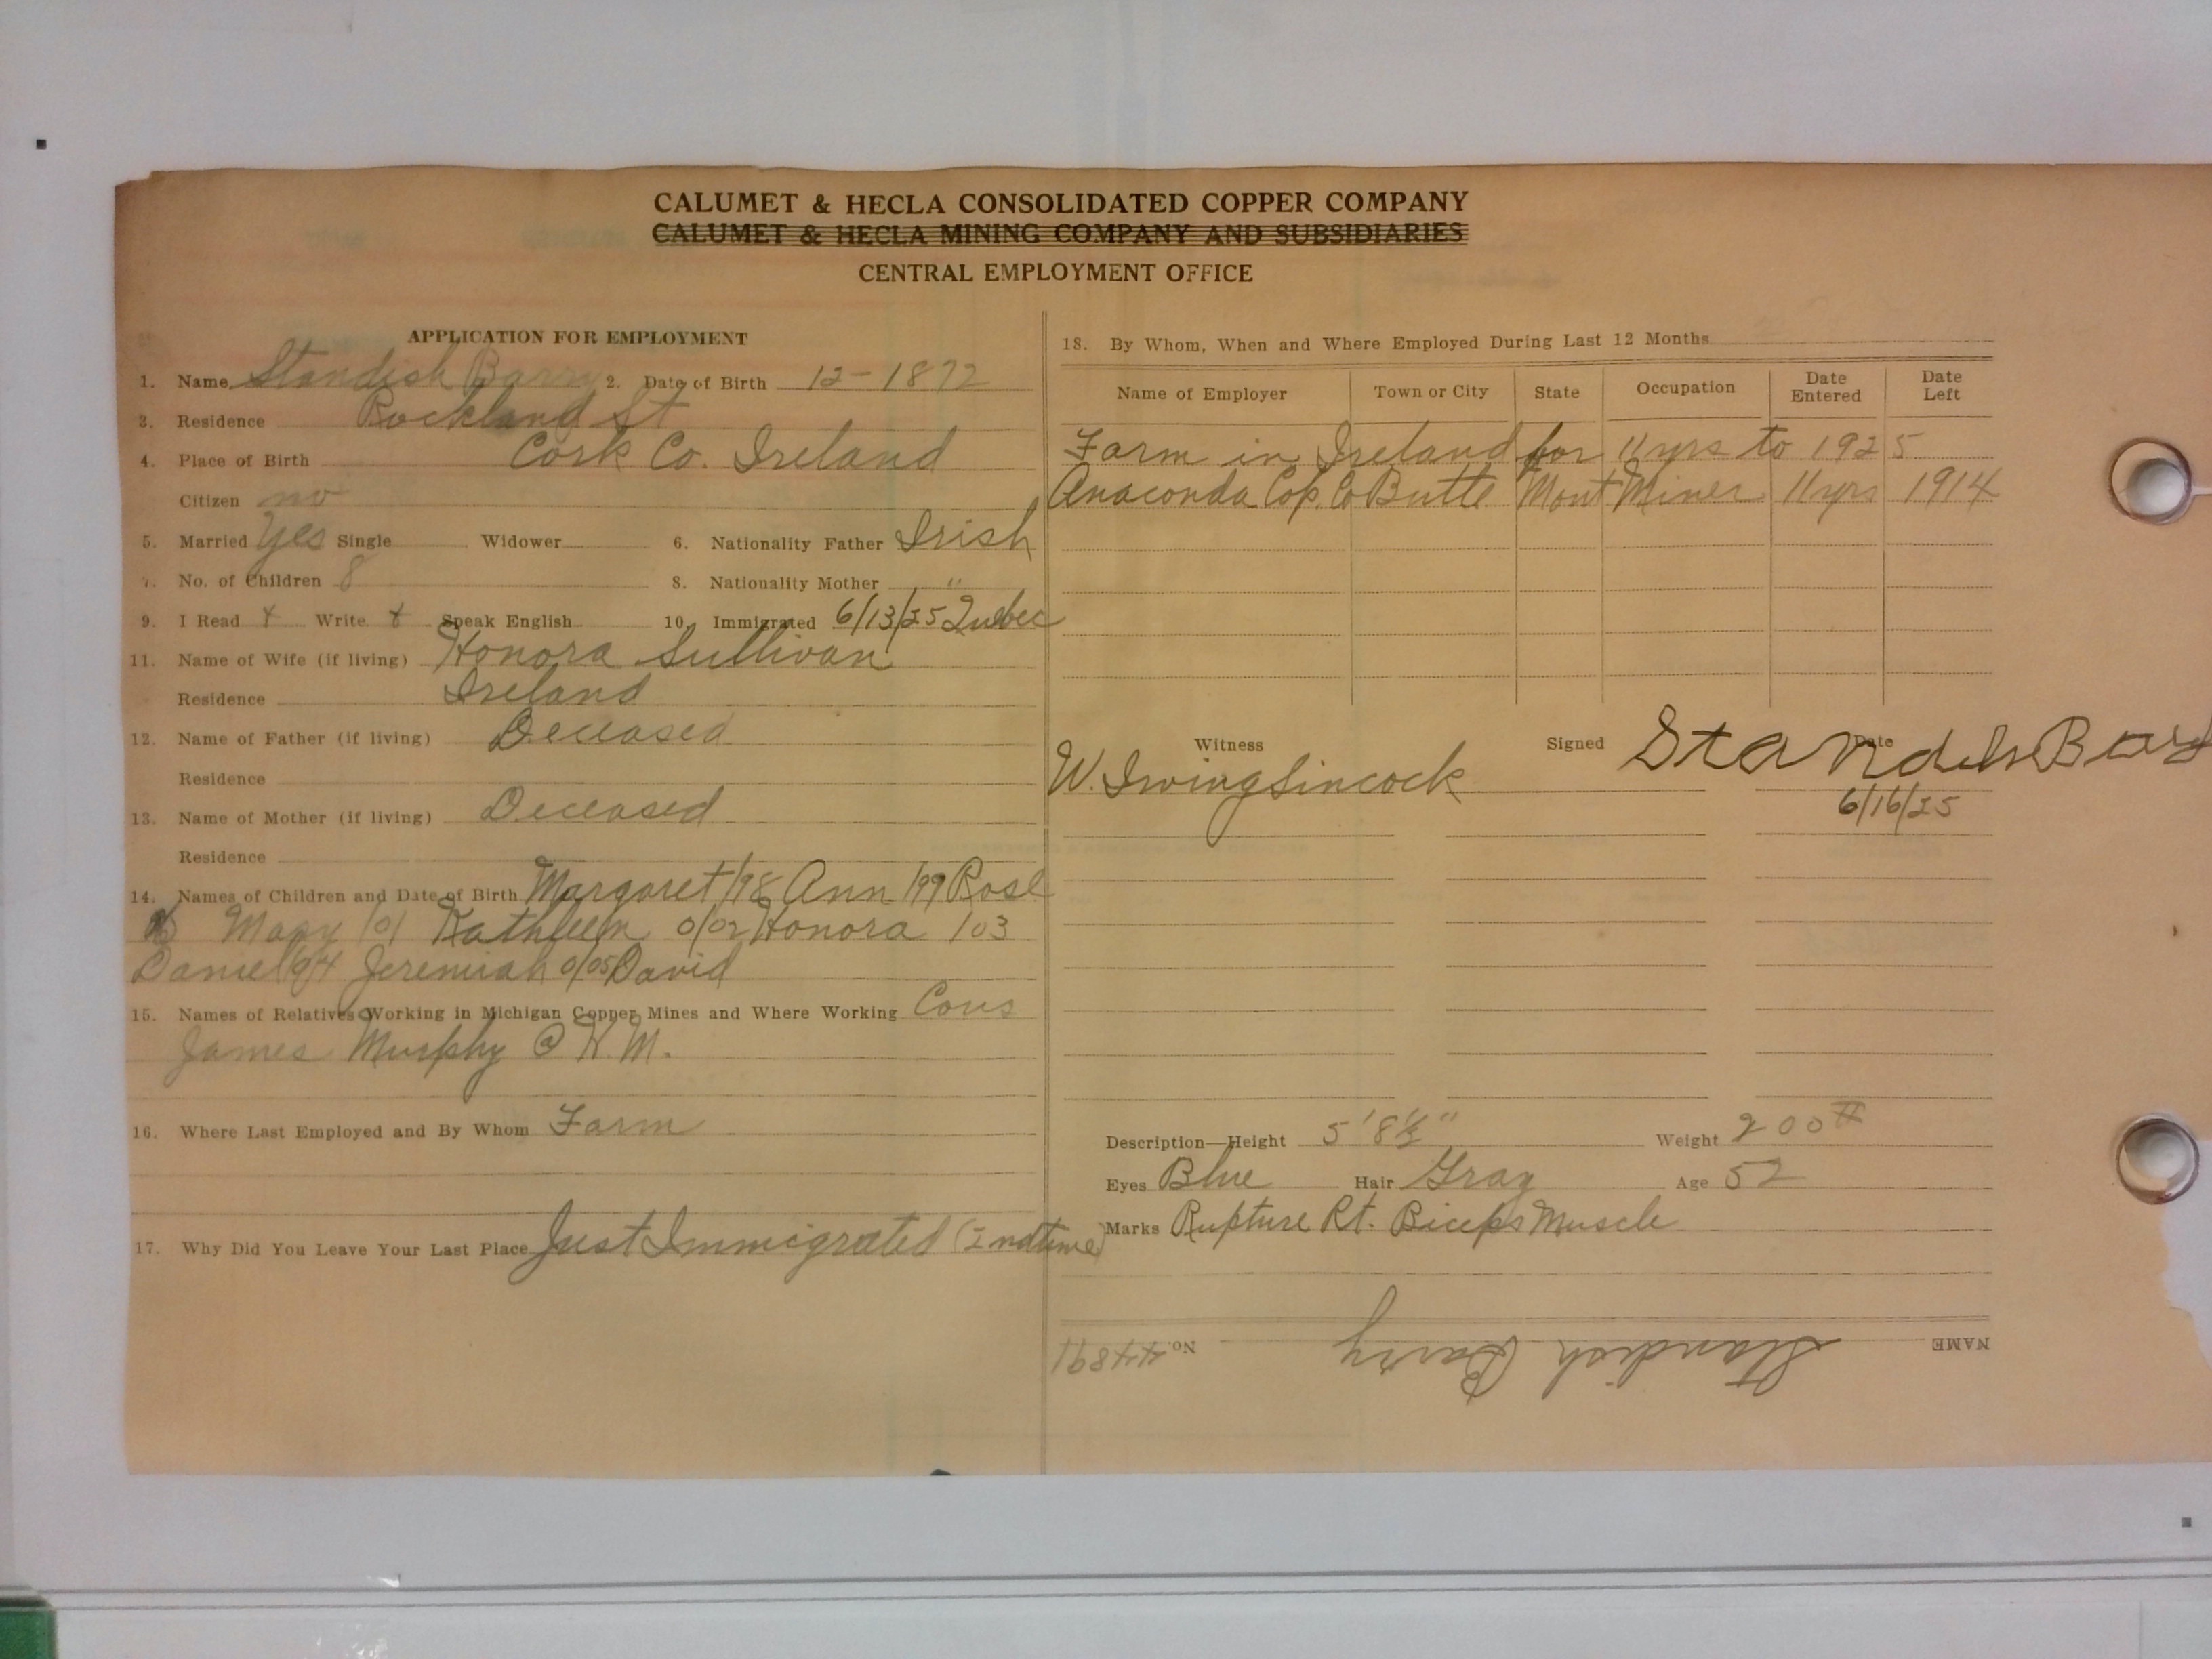 CALUMET & HECLA CONSOLIDATED COPPER COMPANY
CALUMET & HECLA MINING COMPANY AND SUBSIDIARIES
CENTRAL EMPLOYMENT OFFICE
APPLICATION FOR EMPLOYMENT
1. Name Standish Barry 2. Date of Birth 12-1872
3. Residence Rockland St
4. Place of Birth Cork Co. Ireland
Citizen no
5. Married Yes Single Widower 6. Nationality Father Irish
7. No. of Children 8 8. Nationality Mother "
9. I Read + Write + Speak English 10. Immigrated 6/13/25 Quebec
11. Name of Wife (if living) Honora Sullivan
Residence Ireland
12. Name of Father (if living) Deceased
Residence
13. Name of Mother (if living) Deceased
Residence
14. Names of Children and Date of Birth Margaret /98 Ann /99 Rose
Mary /01 Kathleen 0/02 Honora /03
Daniel 04 Jeremiah 0/05 David
15. Names of Relatives Working in Michigan Copper Mines and Where Working Cous
James Murphy @ N.M.
16. Where Last Employed and By Whom Farm
17. Why Did You Leave Your Last Place Just Immigrated (2nd time)
18. By Whom, When and Where Employed During Last 12 Months
Name of Employer Town or City State Occupation Date Entered Date Left
Farm in Ireland for 11 yrs to 1925
Anaconda Cop. Co Butte Mont Miner 11 yrs 1914
Witness Signed Date
W. Irving Sincock Standish Bary
6/16/25
Description—Height 5' 8½" Weight 200#
Eyes Blue Hair Gray Age 52
Marks Rupture Rt. Biceps Muscle
NAME Standish Barry No. 44891